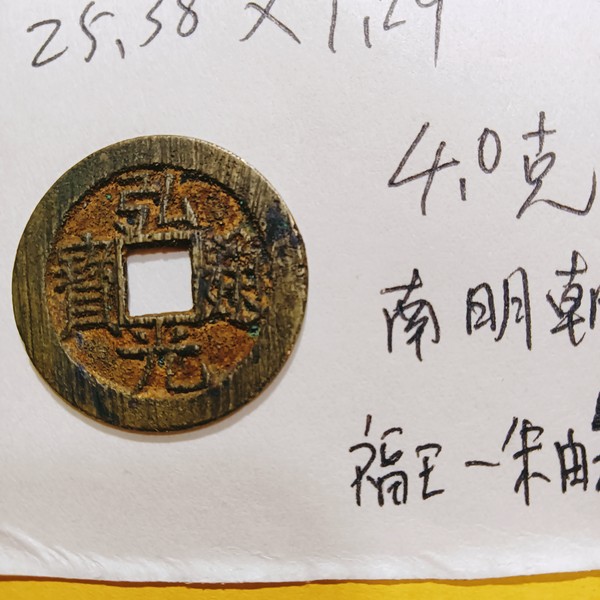 25.58 × 1.29
4.0克
弘光通寶
南明朝
福王一朱由